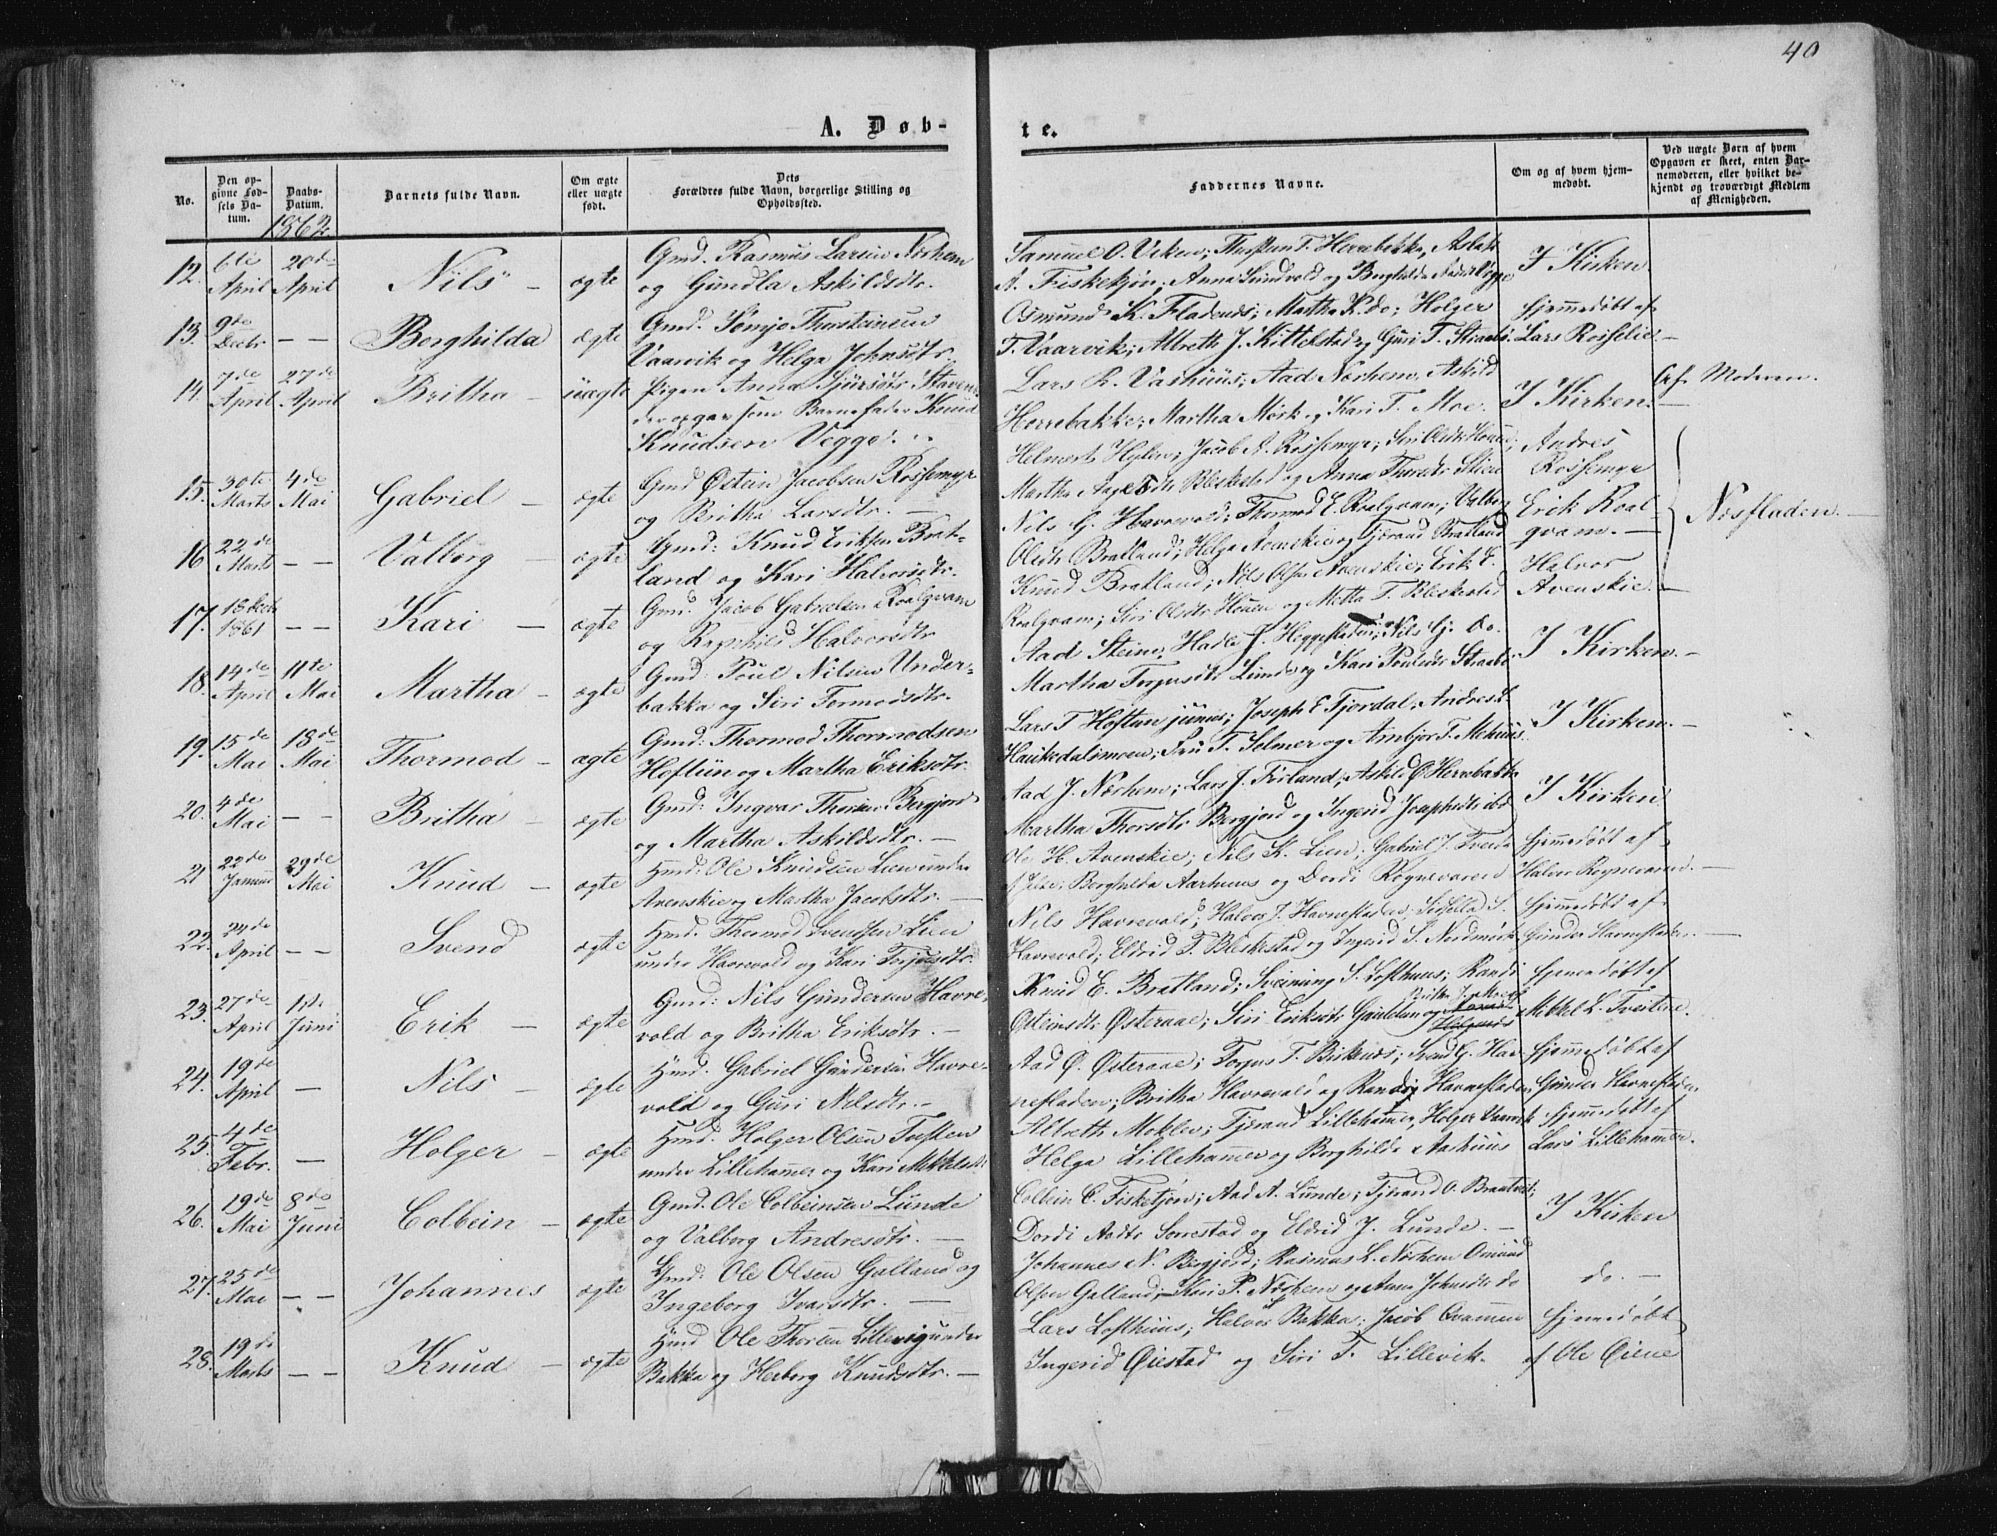 40
A. Døb-
te.
No.
Den op-
givne Fød-
sels Da-
tum.
Daabs-
Datum.
Barnets fulde Navn.
Om ægte
eller uægte
født.
Dets
Forældres fulde Navn, borgerlige Stilling og
Opholdssted.
Faddernes Navne.
Om og af hvem hjem-
medøbt.
Ved uægte Børn af hvem
Opgaven er skeet, enten Bar-
nemoderen, eller hvilket be-
kjendt og troværdigt Medlem
af Menigheden.
1862
12. 6te April 20de April Nils - ægte
Gmd. Rasmus Larsen Nørhem
og Gundla Askildsdtr.
Samuel O. Veken; Thorsten T. Herrebakke, Aslak
A. Fisketjøn, Anna Sundvold og Borghilda Vegge
I Kirken
13. 9de Decbr - - Borghilda ægte
Gmd. Tomjo Thorsteinsen
Vaarvik og Helga Johnsdtr.
Osmund K. Fladends; Martha K. do; Holger
T. Vaarvik; Albreth J. Kittelstad og Guri T. Straabø
Hjemmedøbt af
Lars Rosselie
14. 7de April 27de April Britha - uægte
Pigen Anna Sjursdtr. Staven
der opgav som Barnefader Knud
Knudsen Vegge.
Lars R. Vashuus; Aad Nørhem, Askild
Herrebakke; Martha Mørk og Kari T. Moe.
I Kirken.
af Moderen.
15. 30te Marts 4de Mai Gabriel - ægte
Gmd. Østein Jacobsen Rossemyr
og Britha Larsdtr. -
Helmert Hylen; Jacob A. Rossemyr; Siri Olsdtr Houen;
Martha Aagesdtr Bleskestad og Anna Thoresdtr Stien
Andres
Rossemyr
Nesfladen
16 22de Marts - - Valborg - ægte
Gmd: Knud Eriksen Brat-
land og Kari Halvorsdtr.
Nils G. Havrevold; Thormod E. Roalqvam; Valborg
Olsdtr Bratland; Helga Avenskie og Tjerand Bratland
Erik Roal-
qvam. -
17. 18 Decb 1861 - - Kari - ægte
Gmd. Jacob Gabrielsen Roalqvam
og Ragnhild Halvorsdtr
Knud Bratland; Nils Olsen Avenskie; Erik E.
Roalqvam; Siri Olsdtr Houen og Metta T. Bleskestad
Halvor
Avenskie. -
18. 14de April 11te Mai Martha - ægte
Gmd: Poul Nilsen Under-
bakka og Siri Tormodsdtr.
Aad Steine, Hadle J. Heggestadmoen; Nils Gj. do.
Martha Torgusdtr Lunde og Kari Poulsdtr Straabø
I Kirken. -
19. 15de Mai 18de Mai Thormod - ægte
Gmd: Thormod Thormodsen
Hoftun og Martha Eriksdtr.
Lars T Hoftun junior; Joseph E Fjordal, Andres L.
Haukedalsmoen; Fru T. Selmer og Arnbjør T. Mehuus.
I Kirken. -
20. 4de Mai - - Britha - ægte
Gmd: Ingvar Thorsen Bergjord
og Martha Askildsdtr. -
Aad J. Nørhem; Lars J. Førland; Askild O Herrebakke
Martha Thorsdtr Bergjord og Ingerid Josephsdtr ibd
I Kirken
21 22de Januar 29de Mai Knud - ægte
Hmd: Ole Knudsen Lien under
Avenskie og Martha Jacobsdtr. -
Ole H. Avenskie; Nils K. Lien; Gabriel J. Tveita
Borghilda Aarhuus og Dordi Rognevaren
Hjemmedøbt af
Halvor Rognevaren. -
22. 24de April - - Svend - ægte
Hmd: Thormod Svendsen Lien
under Havrevold og Kari Torjusdtr.
Nils Havrevold; Halvor J. Havnefladen; Sissella S.
Havrevold; Eldrid T. Bleskestad og Ingerid S. Nordmork
Hjemmedøbt af
Gunder Havnefladen. -
23. 27de April 1ste Juni Erik - ægte
Gmd: Nils Gundersen Havre-
vold og Britha Eriksdtr. -
Knud E. Bratland; Sveinung S. Lofthuus; Randi
Østeinsdtr Østeraae; Siri Eriksdtr Gautetun og
Hjemmedøbt af
Mikkel L. Tveitene.
24. 19de April - Nils - ægte
Hmd. Gabriel Gundersen Havre-
vold og Guri Nilsdtr. -
Aad Ø. Østeraae; Torgus T. Birkenes; Svend G. Hav-
nefladen; Britha Havrevold og Randi Havnefladen
Hjemmedøbt af
Gunder Havnefladen
25. 4de Febr. - Holger - ægte
Hmd. Holger Olsen Tusten
under Lillehamer og Kari Mikkelsdtr
Albreth Moklev; Tjerand Lillehamer, Holger Vaarvik
Helga Lillehamer og Borghilda Aarhuus
Hjemmedøbt af
Lars Lillehammer.
26. 19de Mai 8de Juni Colbein - ægte
Gmd. Ole Colbeinsen Lunde
og Valborg Andresdtr. -
Colbein C. Fisketjøn; Aad A. Lunde; Tjerand O. Braatveit;
Dordi Aadtr Sorrestad og Eldrid J. Lunde. -
I Kirken
27. 25de Mai - - Johannes ægte
Gmd: Ole Olsen Galland og
Ingeborg Ivarsdtr. -
Johannes N. Bergjord; Rasmus L. Nørhem Omund
Olsen Galland; Kari P. Nørhem og Anna Johnsdtr do
do. -
28. 19de Marts - - Knud - ægte
Hmd Ole Thorsen Lillevig under
Bakka og Herborg Knudsdtr. -
Lars Lofthuus; Halvor Bakka; Jacob Qvammen
Ingerid Øiestad og Siri T. Lillevik.
Hjemmedøbt
af Ole Øiene